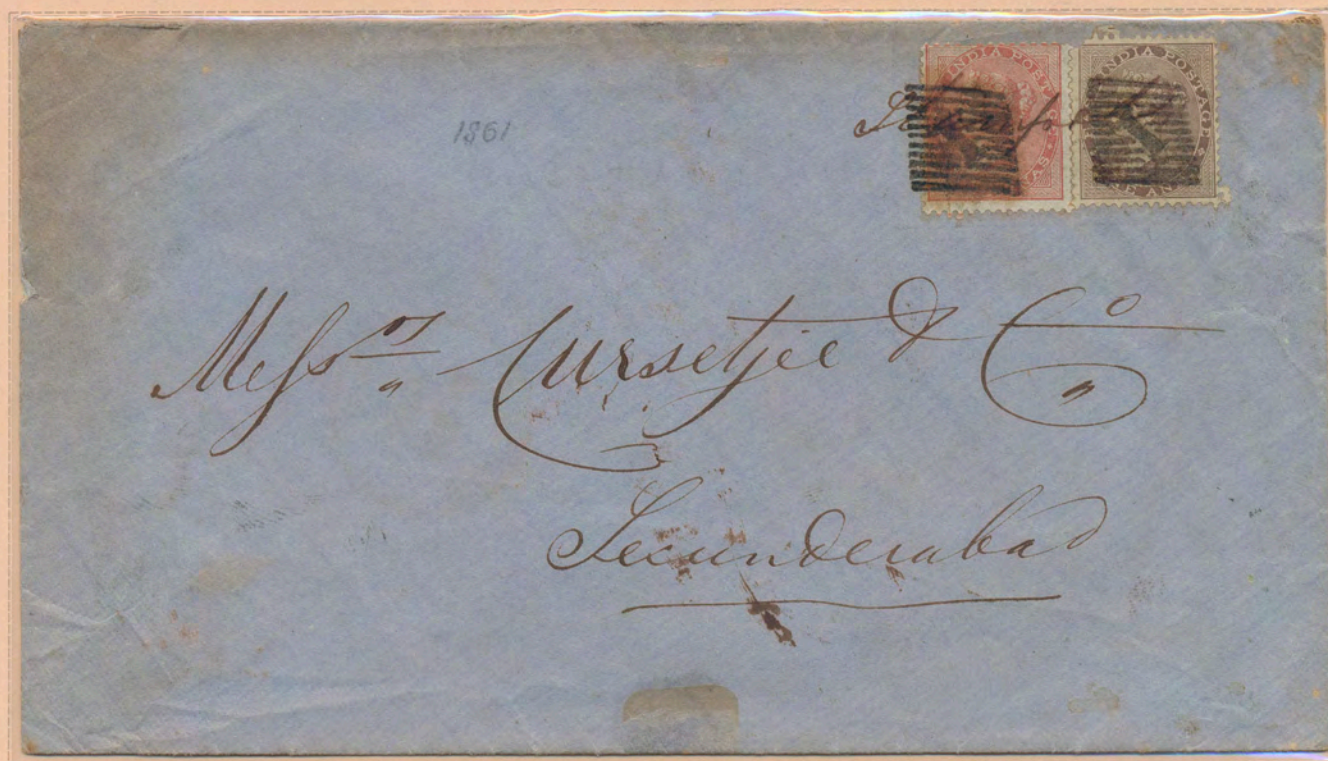 1861
INDIA POSTAGE
INDIA POSTAGE
Messrs Cursetjee & Co
Secunderabad